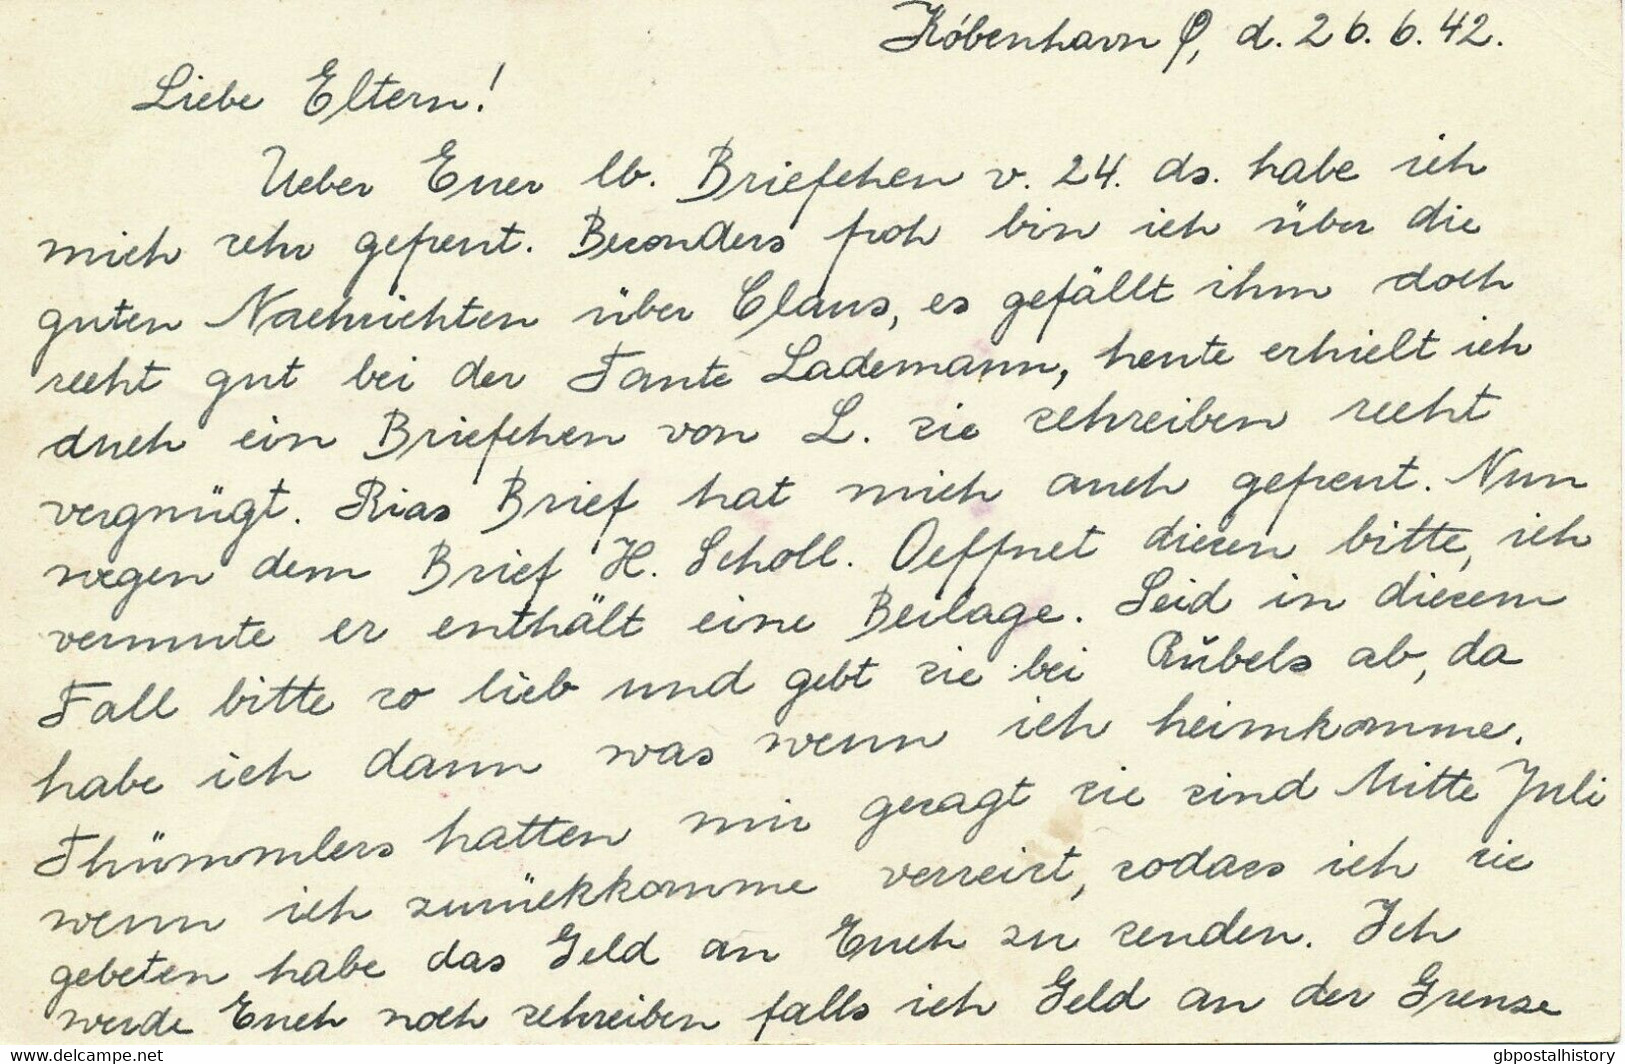 København Ø, d. 26.6.42.
Liebe Eltern!
Ueber Euer lb. Briefchen v. 24. ds. habe ich
mich sehr gefreut. Besonders froh bin ich über die
guten Nachrichten über Claus, es gefällt ihm doch
recht gut bei der Tante Lademann, heute erhielt ich
auch ein Briefchen von L. sie schreiben recht
vergnügt. Rias Brief hat mich auch gefreut. Nun
wegen dem Brief H. Scholl. Oeffnet diesen bitte, ich
vermute er enthält eine Beilage. Seid in diesem
Fall bitte so lieb und gebt sie bei Rübels ab, da
habe ich dann was wenn ich heimkomme.
Thümmlers hatten mir gesagt sie sind Mitte Juli
wenn ich zurückkomme verreist, sodass ich sie
gebeten habe das Geld an Euch zu senden. Ich
werde Euch noch schreiben falls ich Geld an der Grenze
www.delcampe.net
gbpostalhistory